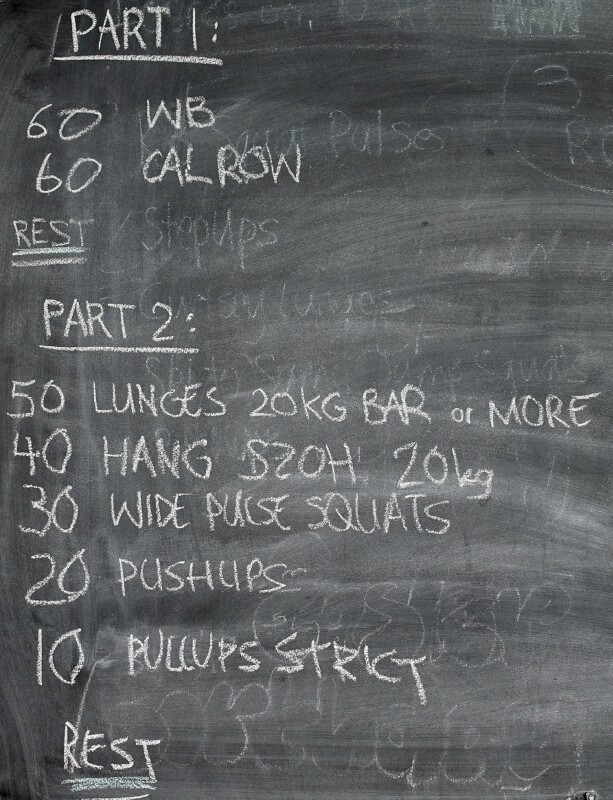 PART 1:
60 WB
60 CAL ROW
Pulse
REST
StepUps
PART 2:
50 LUNGES 20KG BAR or MORE
40 HANG S2OH 20kg
30 WIDE PULSE SQUATS
20 PUSHUPS
10 PULLUPS STRICT
REST